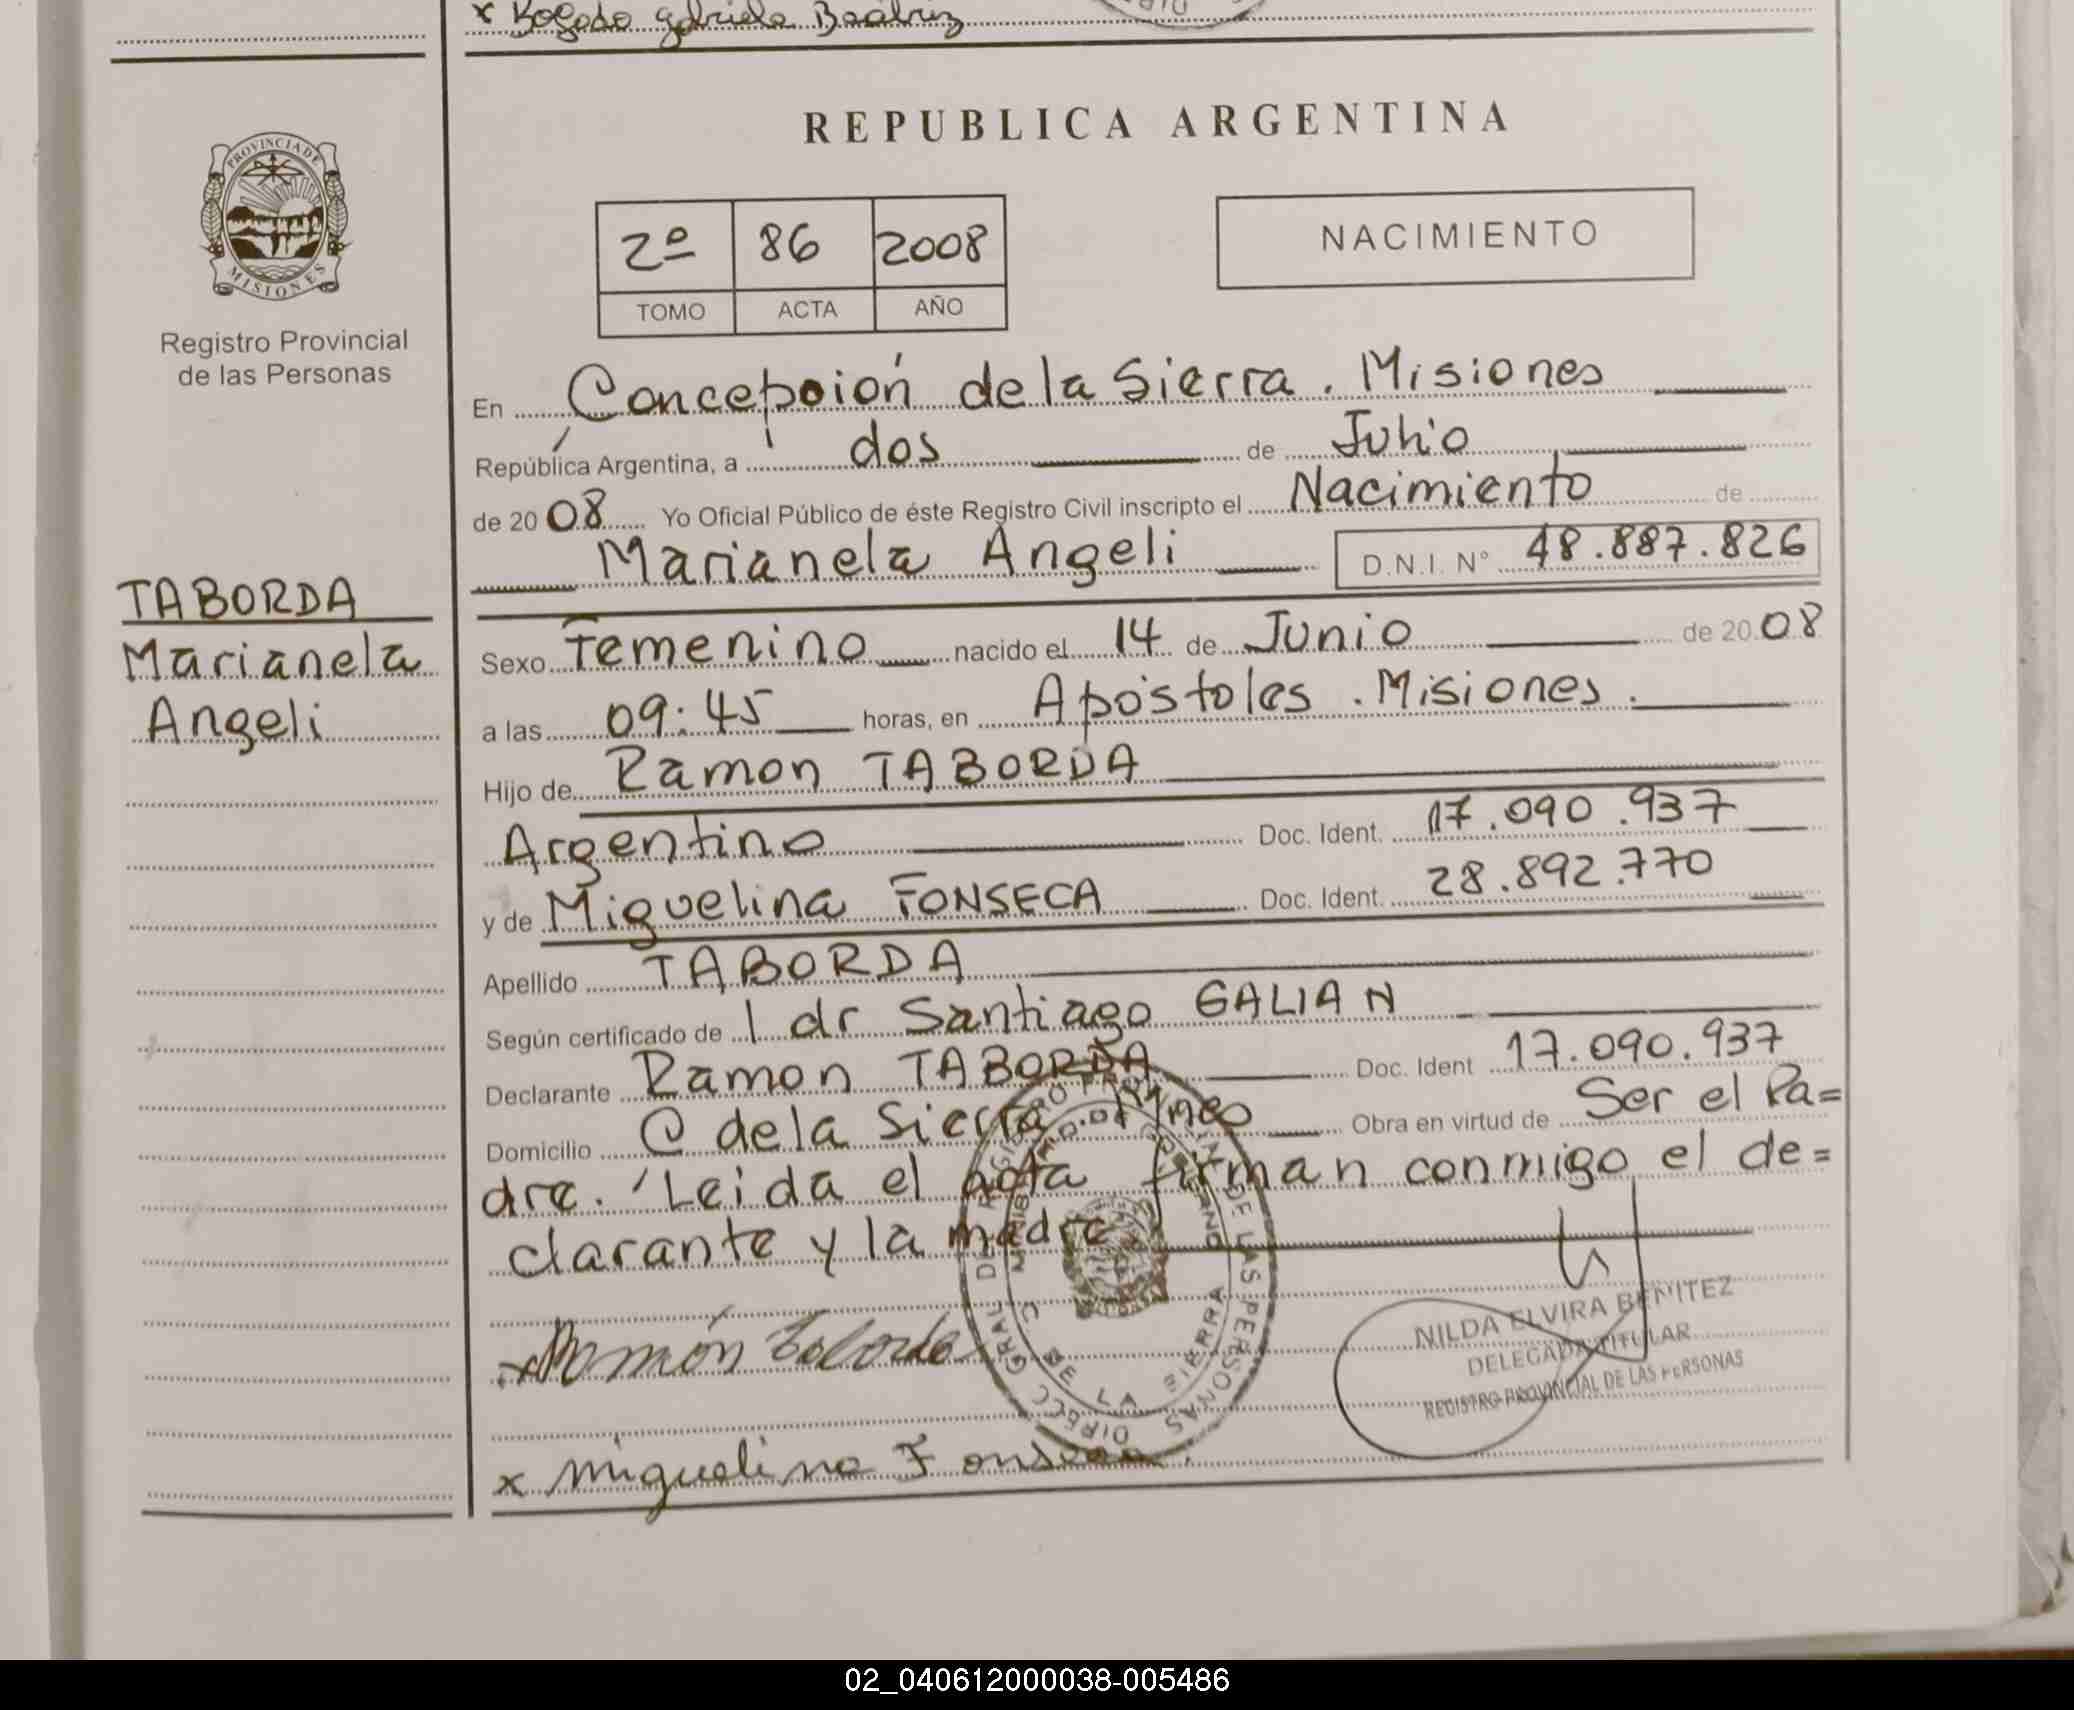 x Bogado Gabriela Beatriz
PROVINCIA DE
MISIONES
Registro Provincial
de las Personas
TABORDA
Marianela
Angeli
REPUBLICA ARGENTINA
2º 86 2008
TOMO ACTA AÑO
NACIMIENTO
En Concepción de la Sierra. Misiones
República Argentina, a dos de Julio
de 2008 Yo Oficial Público de éste Registro Civil inscripto el Nacimiento de
Marianela Angeli D.N.I. Nº 48.887.826
Sexo Femenino nacido el 14 de Junio de 2008
a las 09:45 horas, en Apóstoles. Misiones.
Hijo de Ramon TABORDA
Argentino Doc. Ident. 17.090.937
y de Miguelina FONSECA Doc. Ident. 28.892.770
Apellido TABORDA
Según certificado de l dr Santiago GALIAN
Declarante Ramon TABORDA Doc. Ident 17.090.937
Domicilio C de la Sierra. Mnes Obra en virtud de Ser el Pa=
dre. Leida el acta firman conmigo el de=
clarante y la madre
x Ramón Taborda
NILDA ELVIRA BENITEZ
DELEGADA TITULAR
REGISTRO PROVINCIAL DE LAS PERSONAS
x miguelina Fonseca.
DE LAS PERSONAS
DE LA SIERRA
02_040612000038-005486